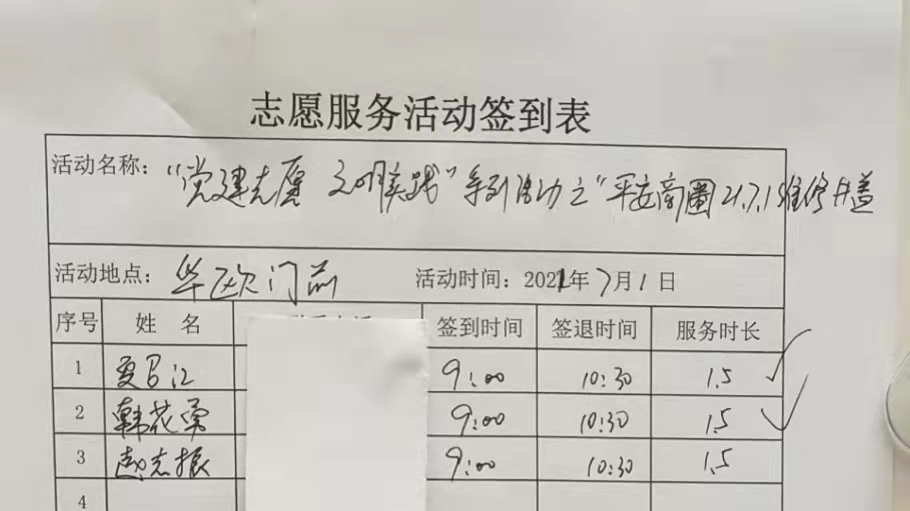 志愿服务活动签到表
活动名称："党建志愿 文明实践"系列活动之"平安商圈21.7.1维修井盖
活动地点：华欧门前 活动时间：2021年7月1日
序号 姓名 签到时间 签退时间 服务时长
1 9:00 10:30 1.5
2 韩花勇 9:00 10:30 1.5
3 赵志振 9:00 10:30 1.5
4